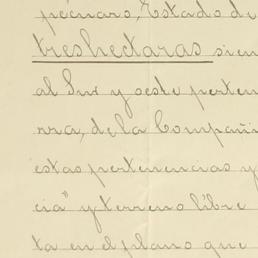 Estado de
tres hectaras
al Sur y oeste perten
rra, de la Compañi
estas pertenencias y
cia" y terreno libre
ta en el plano que